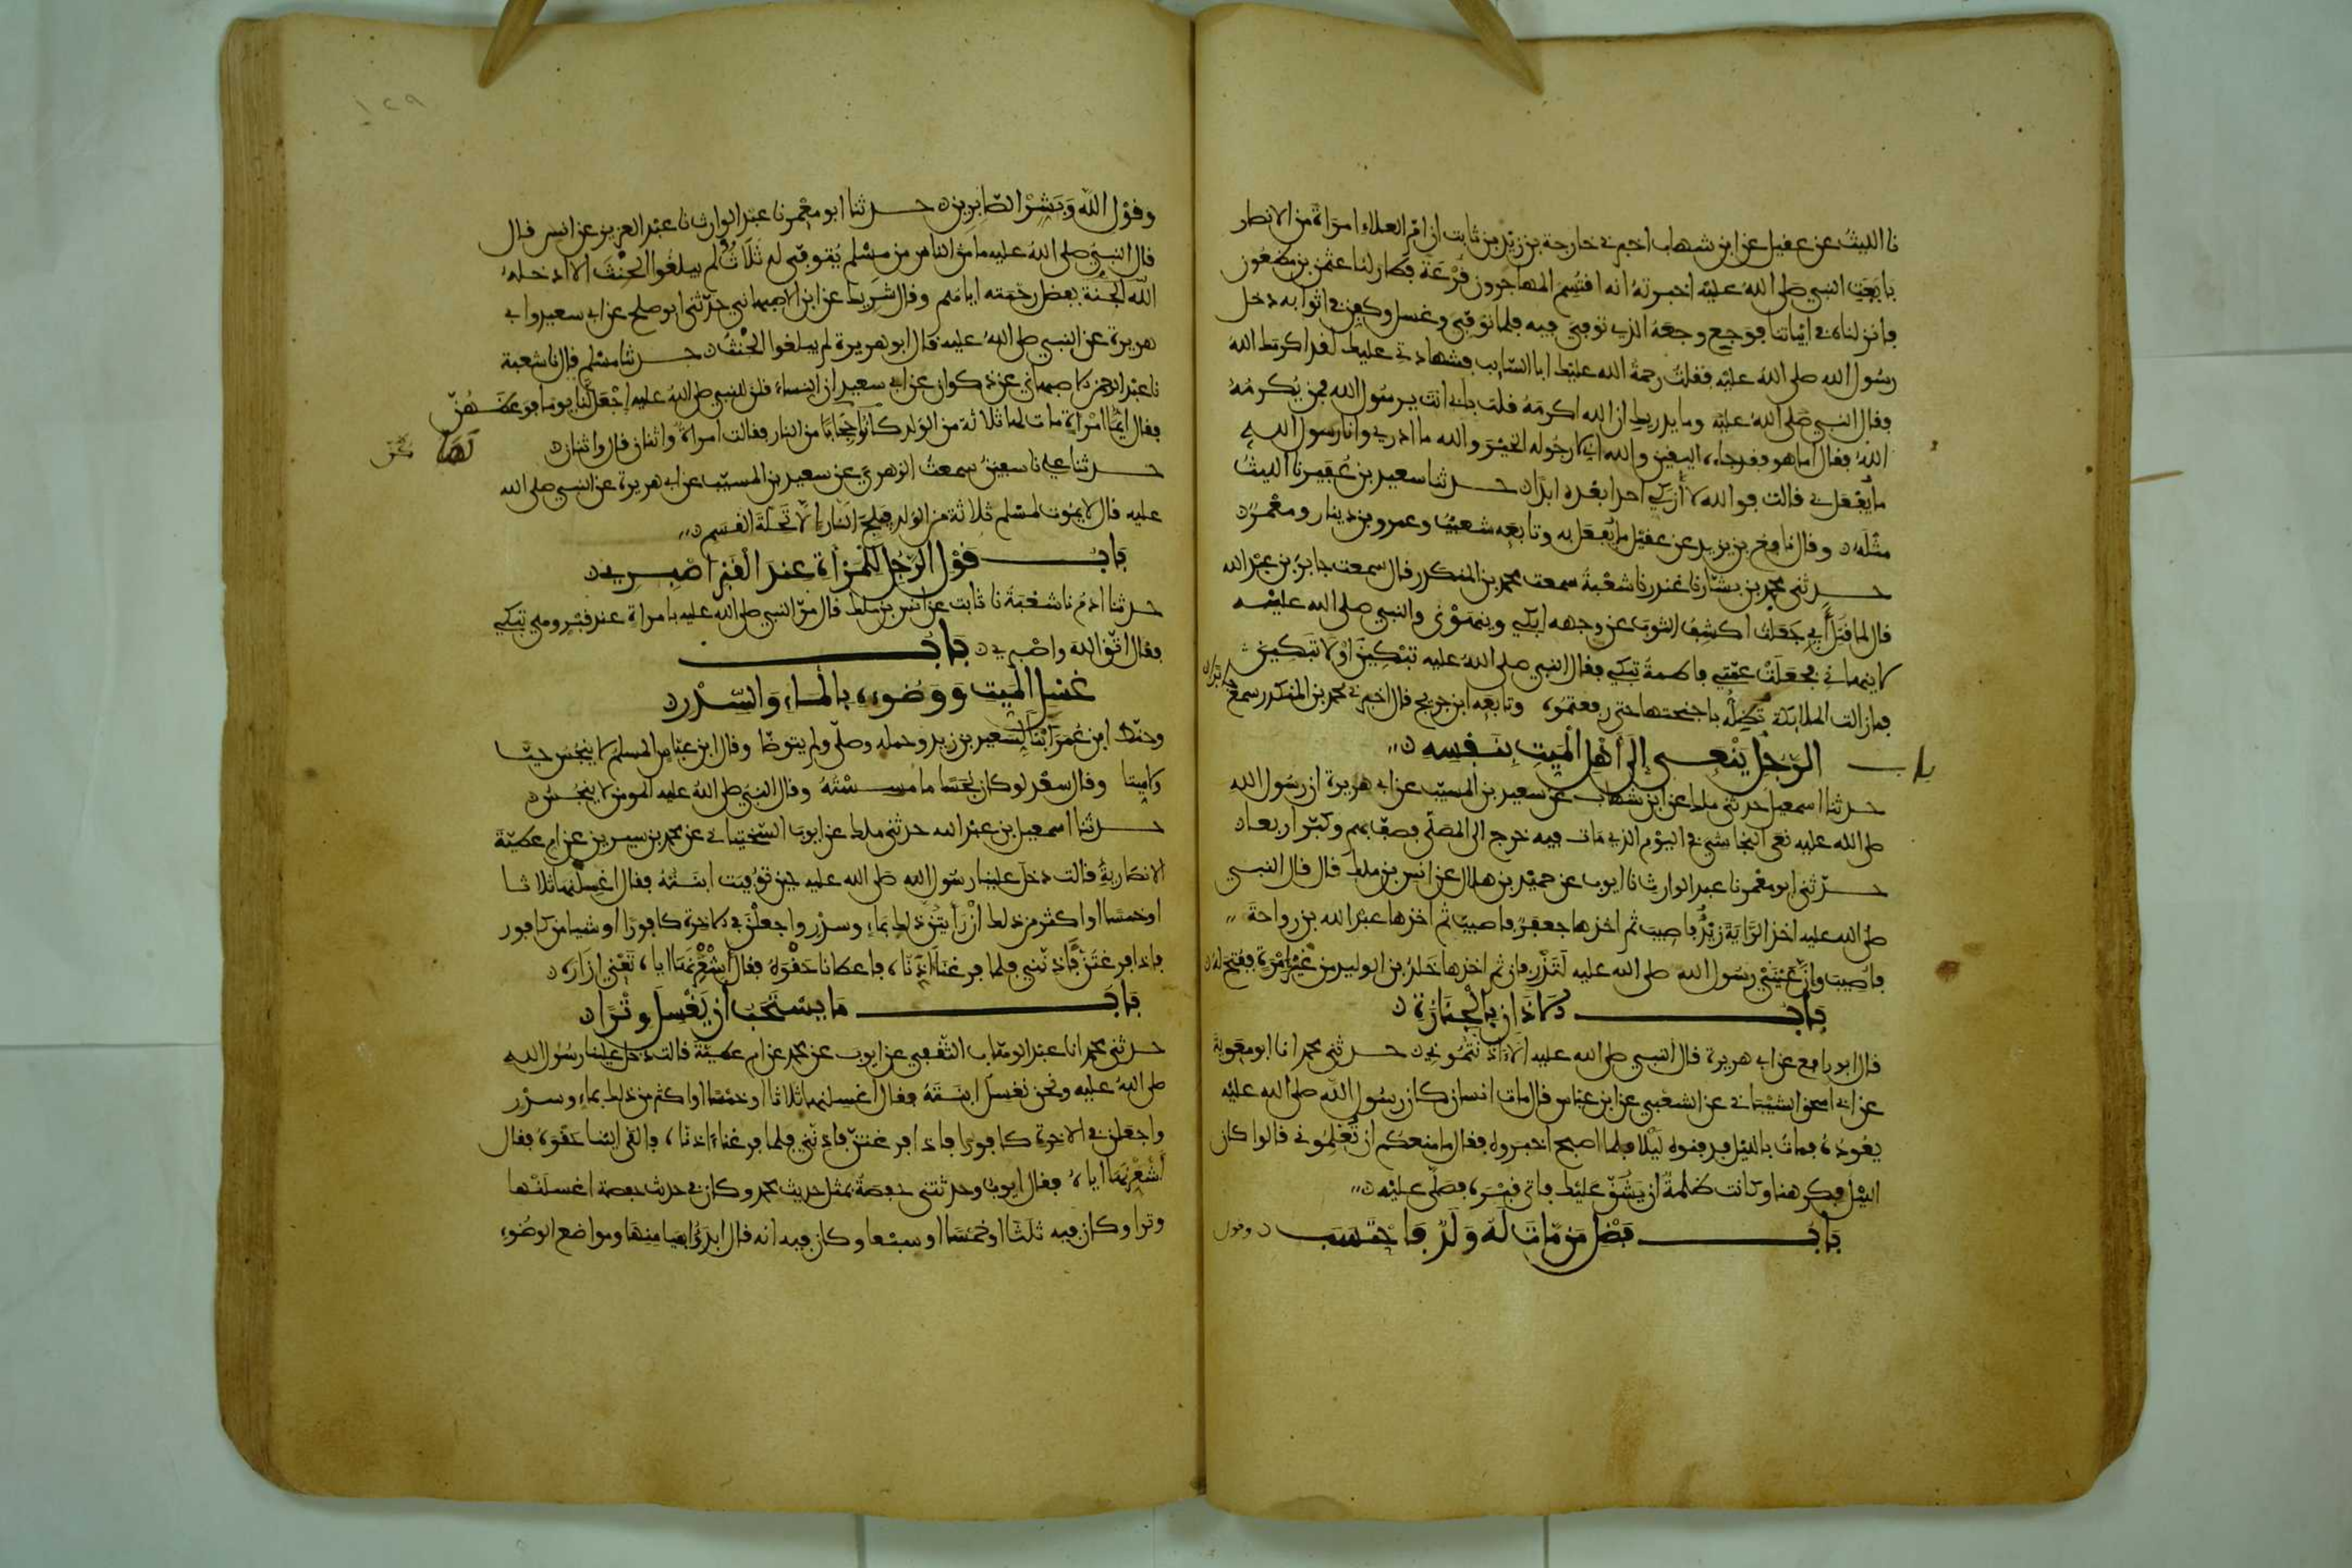 نا الليث عن عقيل عن ابن شهاب اخبرني خارجة بن زيد بن ثابت ان ام العلاء امراة من الانصار
بايعت النبي صلى الله عليه اخبرته انه اقتسم المهاجرون قرعة فطار لنا عثمن بن مظعون
فانزلناه في ابياتنا فوجع وجعه الذي توفي فيه فلما توفي وغسل وكفن في اثوابه دخل
رسول الله صلى الله عليه فقلت رحمة الله عليك ابا السايب فشهادتي عليك لقد اكرمك الله
فقال النبي صلى الله عليه وما يدريك ان الله اكرمه قلت بابي انت يرسول الله فمن يكرمه
الله فقال اما هو فقد جاءه اليقين والله اني لارجو له الخير والله ما ادري وانا رسول الله
ما يفعل بي قالت فوالله لا ازكي احدا بعده ابدا حدثنا سعيد بن عفير نا الليث
مثله وقال نافع بن يزيد عن عقيل ما يفعل به وتابعه شعيب وعمرو بن دينار ومعمر
حدثني محمد بن بشار نا غندر نا شعبة سمعت محمد بن المنكدر قال سمعت جابر بن عبد الله
قال لما قتل ابي جعلت اكشف الثوب عن وجهه ابكي وينهوني والنبي صلى الله عليه
لا ينهاني فجعلت عمتي فاطمة تبكي فقال النبي صلى الله عليه تبكين او لا تبكين
فما زالت الملايكة تظله باجنحتها حتى رفعتموه وتابعه ابن جريج قال اخبرني محمد بن المنكدر سمع جابرا
باب الرجل ينعى الى اهل الميت بنفسه
حدثنا اسمعيل حدثني ملك عن ابن شهاب عن سعيد بن المسيب عن ابي هريرة ان رسول الله
صلى الله عليه نعى النجاشي في اليوم الذي مات فيه خرج الى المصلى فصف بهم وكبر اربعا
حدثني ابو معمر نا عبد الوارث نا ايوب عن حميد بن هلال عن انس بن ملك قال قال النبي
صلى الله عليه اخذ الراية زيد فاصيب ثم اخذها جعفر فاصيب ثم اخذها عبد الله بن رواحة
فاصيب وان عيني رسول الله صلى الله عليه لتذرفان ثم اخذها خلد بن الوليد من غير امرة ففتح له
باب الاذان بالجنازة
قال ابو رافع عن ابي هريرة قال النبي صلى الله عليه الا اذنتموني حدثني محمد انا ابو معوية
عن ابي اسحق الشيباني عن الشعبي عن ابن عباس قال مات انسان كان رسول الله صلى الله عليه
يعوده فمات بالليل فدفنوه ليلا فلما اصبح اخبروه فقال ما منعكم ان تعلموني قالوا كان
الليل فكرهنا وكانت ظلمة ان يشق عليك فاتى قبره فصلى عليه
باب فضل من مات له ولد فاحتسب وقول
١٢٩
وقول الله وبشر الصابرين حدثنا ابو معمر نا عبد الوارث نا عبد العزيز عن انس قال
قال النبي صلى الله عليه ما من الناس من مسلم يتوفى له ثلاث لم يبلغوا الحنث الا ادخله
الله الجنة بفضل رحمته اياهم وقال شريك عن ابن الاصبهاني حدثني ابو صلح عن ابي سعيد وابي
هريرة عن النبي صلى الله عليه قال ابو هريرة لم يبلغوا الحنث حدثنا مسلم قال نا شعبة
نا عبد الرحمن الاصبهاني عن ذكوان عن ابي سعيد ان النساء قلن للنبي صلى الله عليه اجعل لنا يوما فوعظهن
فقال ايما امراة مات لها ثلاثة من الولد كانوا حجابا من النار فقالت امراة واثنان قال واثنان
لها
حدثنا علي نا سفين سمعت الزهري عن سعيد بن المسيب عن ابي هريرة عن النبي صلى الله
عليه قال لا يموت لمسلم ثلاثة من الولد فيلج النار الا تحلة القسم
باب قول الرجل للمراة عند القبر اصبري
حدثنا ادم نا شعبة نا ثابت عن انس بن ملك قال مر النبي صلى الله عليه بامراة عند قبر وهي تبكي
فقال اتقي الله واصبري باب
غسل الميت ووضوءه بالماء والسدر
وحنط ابن عمر ابنا لسعيد بن زيد وحمله وصلى ولم يتوضا وقال ابن عباس المسلم لا ينجس حيا
ولا ميتا وقال سعد لو كان نجسا ما مسسته وقال النبي صلى الله عليه المومن لا ينجس
حدثنا اسمعيل بن عبد الله حدثني ملك عن ايوب السختياني عن محمد بن سيرين عن ام عطية
الانصارية قالت دخل علينا رسول الله صلى الله عليه حين توفيت ابنته فقال اغسلنها ثلاثا
او خمسا او اكثر من ذلك ان رايتن ذلك بماء وسدر واجعلن في الاخرة كافورا او شيا من كافور
فاذا فرغتن فاذنني فلما فرغنا اذناه فاعطانا حقوه فقال اشعرنها اياه تعني ازاره
باب ما يستحب ان يغسل وترا
حدثني محمد انا عبد الوهاب الثقفي عن ايوب عن محمد عن ام عطية قالت دخل علينا رسول الله
صلى الله عليه ونحن نغسل ابنته فقال اغسلنها ثلاثا او خمسا او اكثر من ذلك بماء وسدر
واجعلن في الاخرة كافورا فاذا فرغتن فاذنني فلما فرغنا اذناه فالقى الينا حقوه فقال
اشعرنها اياه فقال ايوب وحدثتني حفصة بمثل حديث محمد وكان في حديث حفصة اغسلنها
وترا وكان فيه ثلثا او خمسا او سبعا وكان فيه انه قال ابدؤا بميامنها ومواضع الوضوء